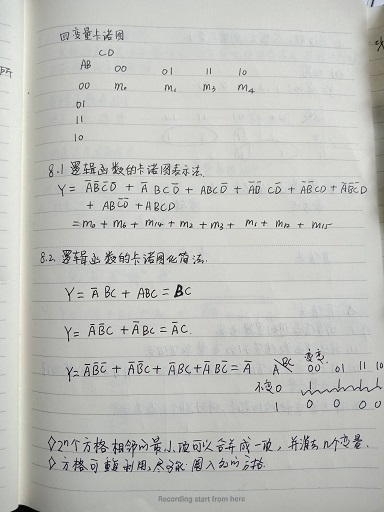 四变量卡诺图
CD
AB 00 01 11 10
00 m₀ m₁ m₃ m₄
01
11
10
8.1 逻辑函数的卡诺图表示法.
Y = A̅B̅C̅D̅ + A̅BCD̅ + ABCD̅ + A̅B̅CD̅ + A̅B̅CD + A̅B̅C̅D
+ ABC̅D̅ + ABCD
= m₀ + m₆ + m₁₄ + m₂ + m₃ + m₁ + m₁₂ + m₁₅
8.2. 逻辑函数的卡诺图化简法.
Y = A̅BC + ABC = BC
Y = A̅B̅C + A̅BC = A̅C.
Y = A̅B̅C̅ + A̅B̅C + A̅BC + A̅BC̅ = A̅
变变
A BC 00 01 11 10
不变0
1 0 0 0 0
◇2ⁿ个方格相邻的最小项可以合并成一项, 并消去n个变量.
◇方格可重复利用,
Recording start from here